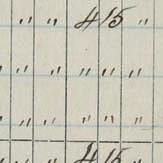 " " 415 "
" " " " " "
" " " " "
" " 415 "